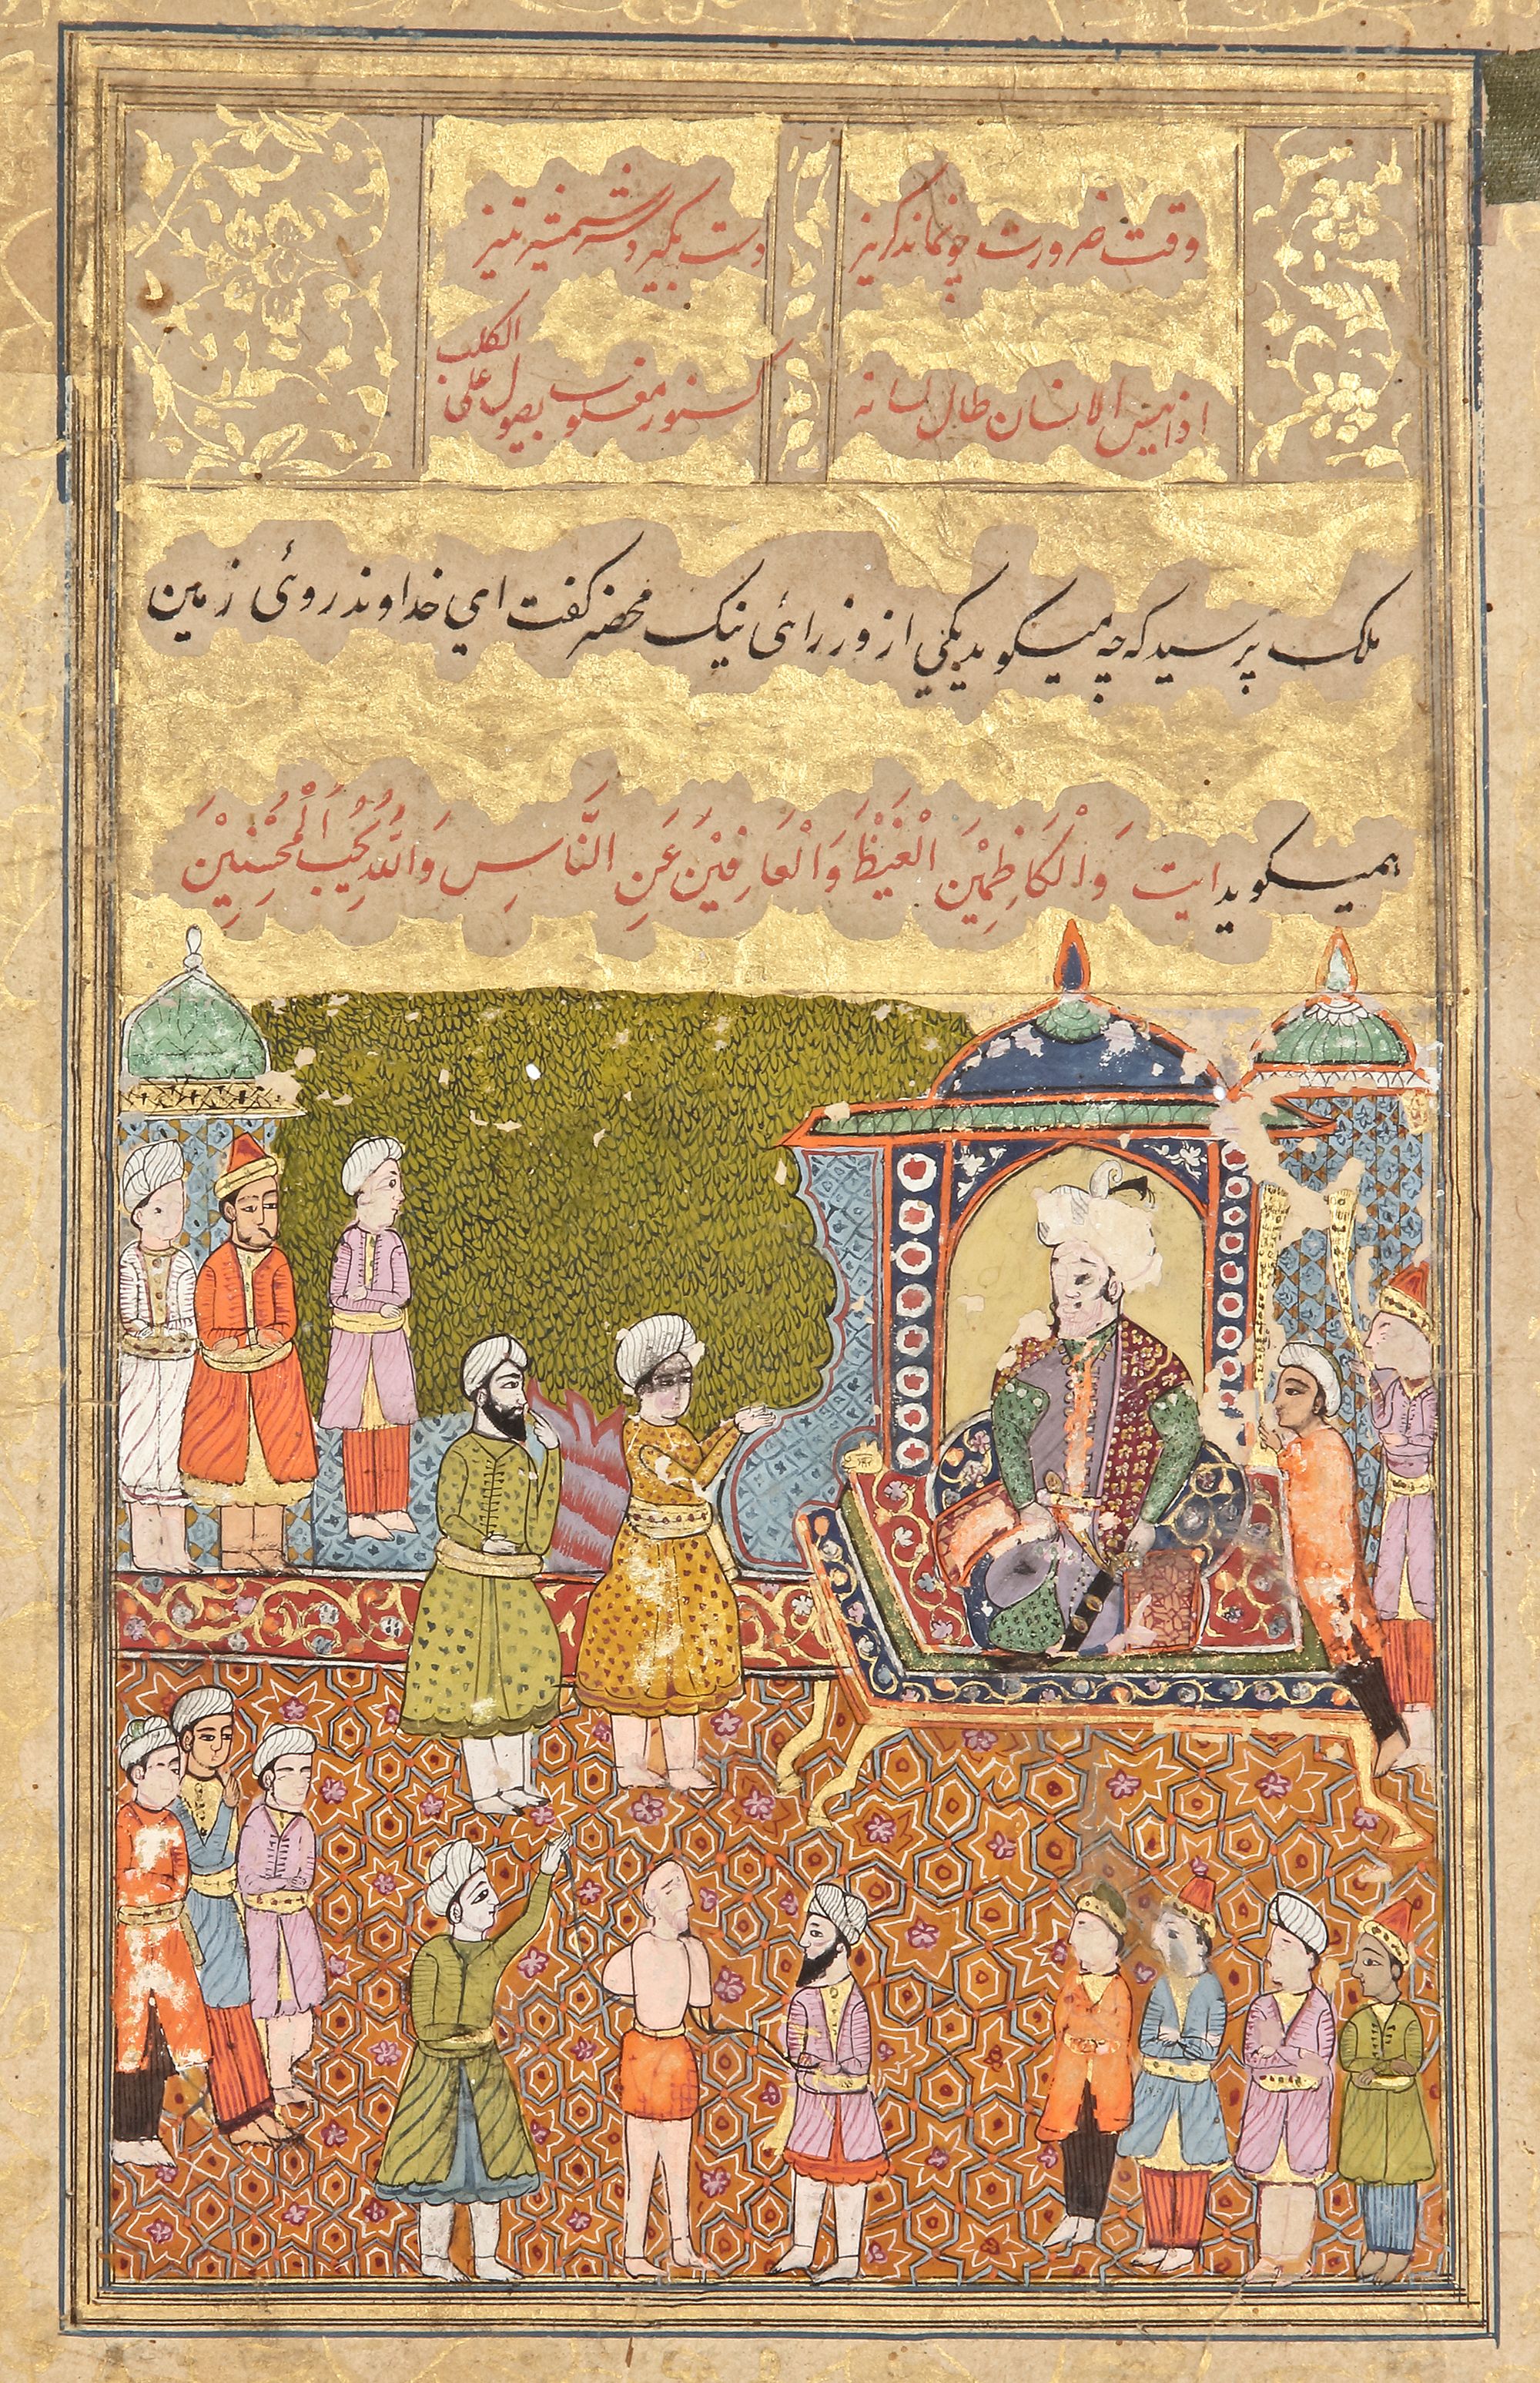 وقت ضرورت چو نماند گریز دست بگیر و سر شمشیر تیز
اذا یئس الانسان طال لسانه کسنور مغلوب یصول علی الکلب
ملک پرسید که چه میگوید یکی از وزرائی نیک محضر گفت ای خداوند روئی زمین
همیگوید ایت وَالْكَاظِمِيْنَ الْغَيْظَ وَالْعَافِيْنَ عَنِ النَّاسِ وَاللّٰهُ يُحِبُّ الْمُحْسِنِيْنَ